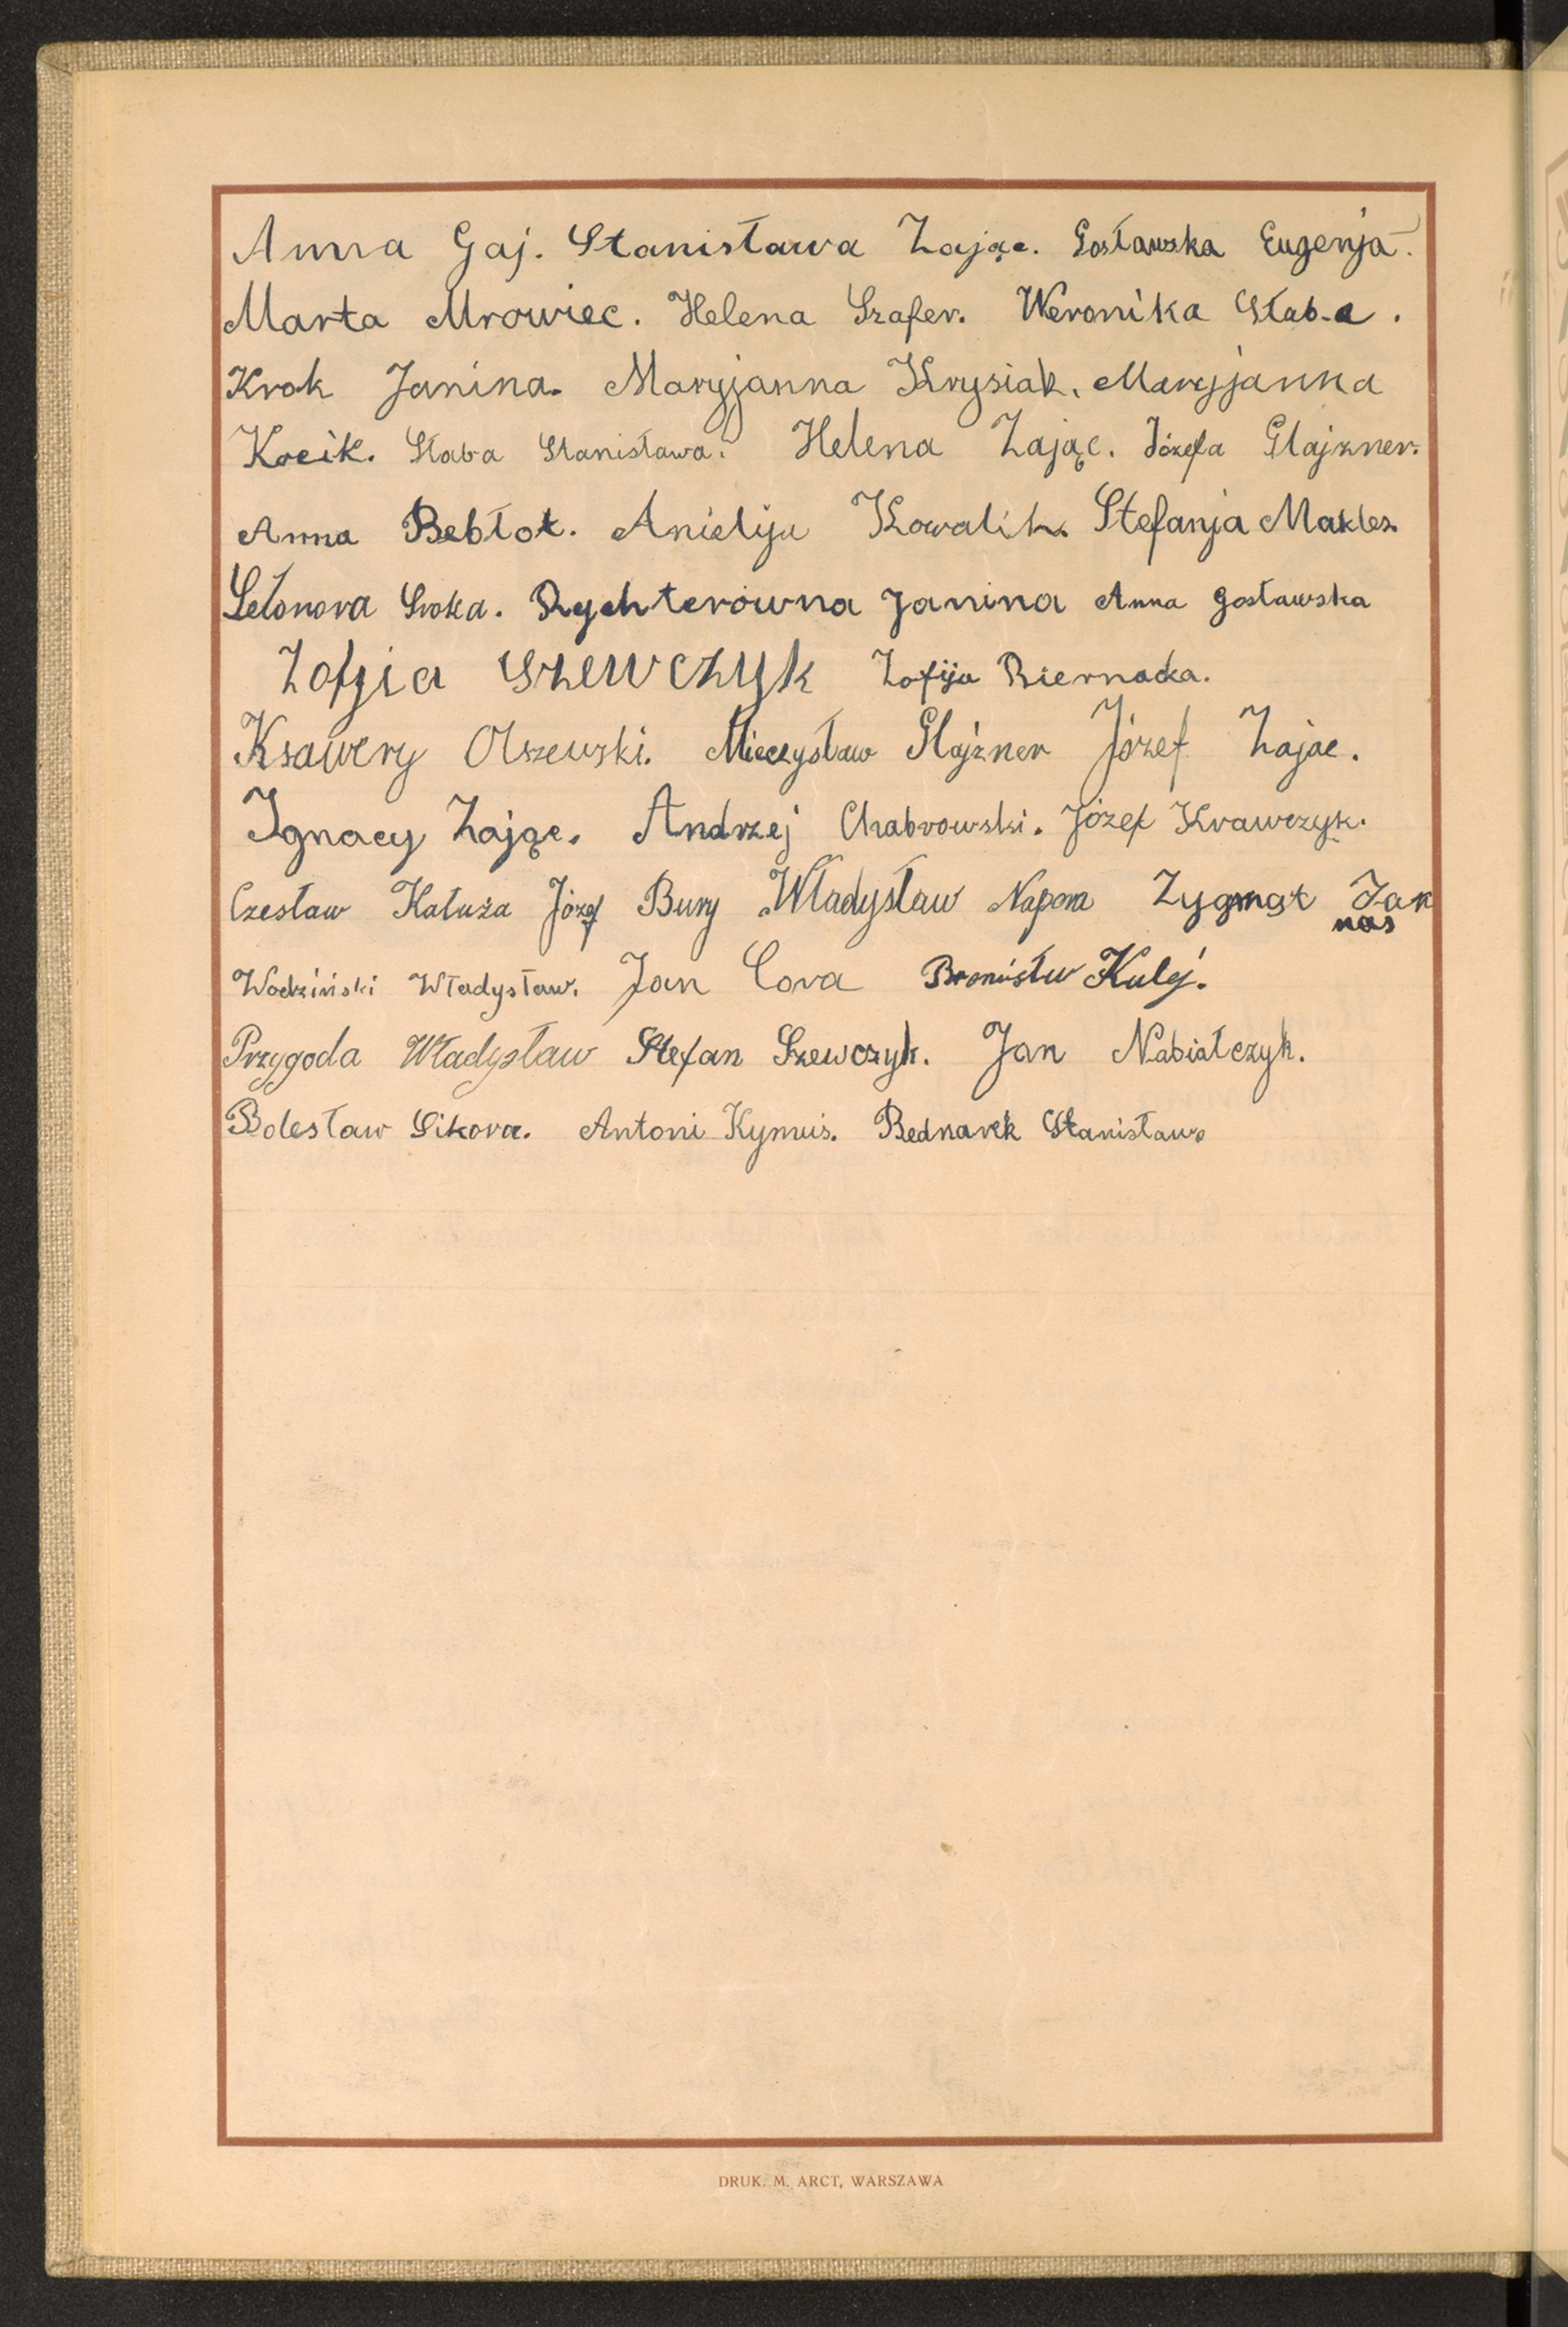 Anna Gaj. Stanisława Zając. Gosławska Eugenja.
Marta Mrowiec. Helena Szafer. Weronika Słaba.
Krok Janina. Maryjanna Krysiak. Maryjanna
Kocik. Słaba Stanisława. Helena Zając. Józefa Glajzner.
Anna Bebłot. Anielija Kowalik. Stefanja Makles.
Sroka. Rychterówna Janina Anna Gosławska
Zofjia Szewczyk Zofija Biernacka.
Ksawery Olszewski. Mieczysław Glajzner Józef Zajac.
Ignacy Zając. Andrzej Chabrowski. Józef Krawczyk.
Czesław Kałuża Józef Bury Władysław Napora Zygmót Jak
nas
Wodziński Władysław. Jan Cora Bronisłw Kulej.
Przygoda Władysław Stefan Szewczyk. Jan Nabiałczyk.
Bolesław Sikora. Antoni Kymuś. Bednarek Stanisław
DRUK. M. ARCT, WARSZAWA